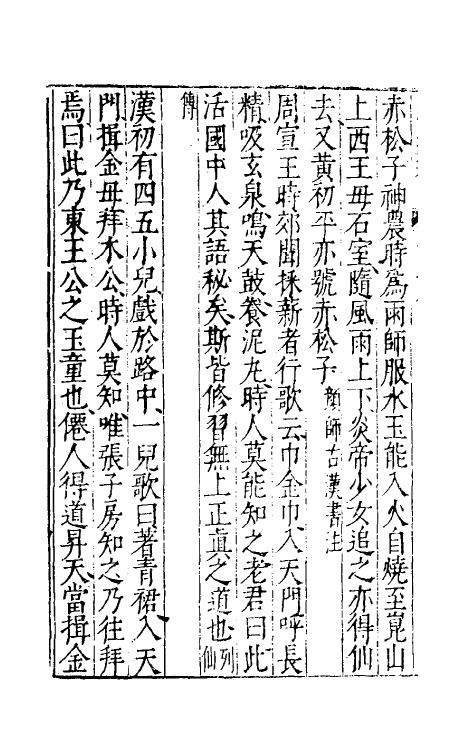 赤松子神農時爲雨師服水玉能入火自燒至崑山
上西王母石室隨風雨上下炎帝少女追之亦得仙
去又黃初平亦號赤松子顔師古漢書注
周宣王時郊聞採薪者行歌云巾金巾入天門呼長
精吸玄泉鳴天鼓養泥丸時人莫能知之老君曰此
活國中人其語秘矣斯皆修習無上正眞之道也列仙
傳
漢初有四五小兒戲於路中一兒歌曰著青裙入天
門揖金母拜木公時人莫知唯張子房知之乃往拜
焉曰此乃東王公之玉童也僊人得道昇天當揖金